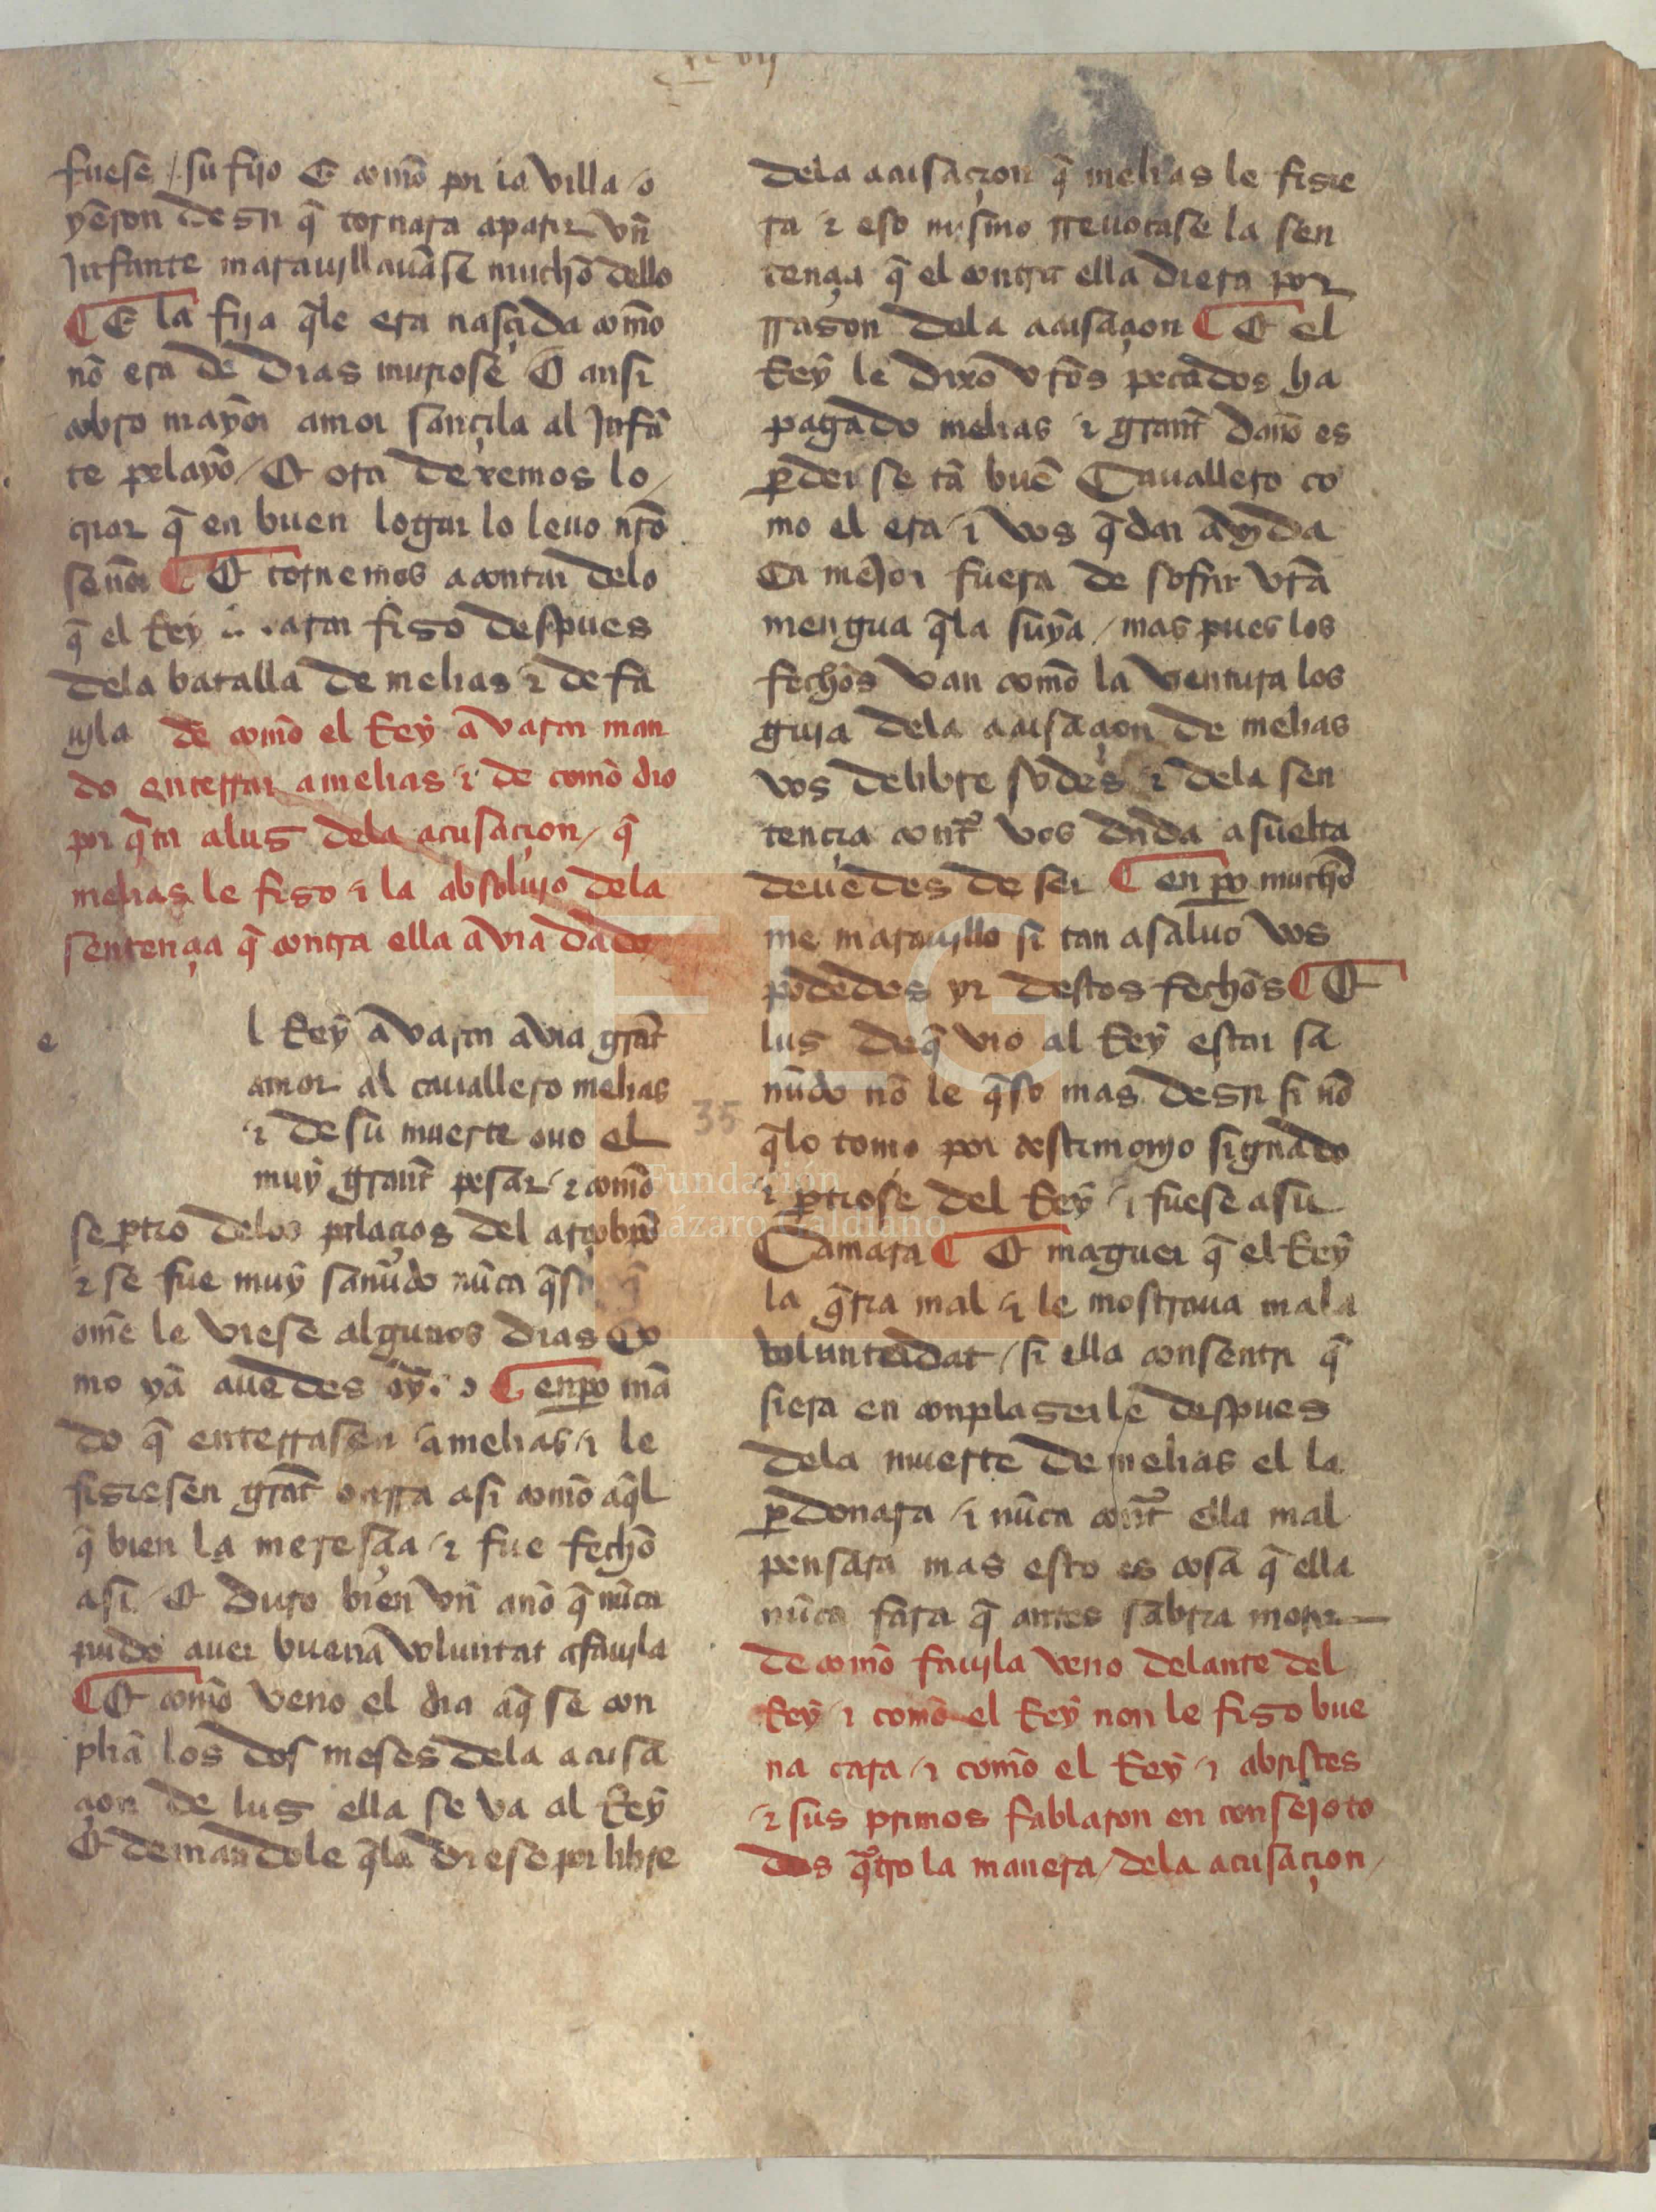 xc vij
fuese / su fijo E comō por la villa / o
yerōn desir q̄ tornara a parir vn̄
Infante marauillauāse muchō dello
¶ E la fija q̄ le era nasçida comō
nō era de dias muriose / E ansi
cobro mayor amor sançila al Infā
te pelayo / Et ora dexemos lo /
criar q̄ en buen logar lo leuo nr̄o
señor ¶ Et tornemos a contar delo
q̄ el Rey fiso despues
dela batalla de melias ⁊ de fa
uyla de comō el Rey auarca man
do enterrar a melias ⁊ de comō dio
por q̄ta a lus dela acusaçion / q̄
melias le fiso ⁊ la absoluio dela
sentençia q̄ contra ella auia dado
e
l Rey auarca auia grāt
amor al cauallero melias
⁊ de su muerte ouo el
muy grant pesar / ⁊ comō
se ꝑtio delos palaçios del arçobpō
⁊ se fue muy sanūdo nūca q̄so q̄
omē le viese algunos dias Co
mo yā auedes oy.. o ¶ enpo mā
do q̄ enterrasen a melias / ⁊ le
fisiesen grāt onrra asi comō aq̄l
q̄ bien la meresçia / ⁊ fue fechō
asi / Et duro bien vn̄ anō q̄ nūca
pudo auer buena voluntat a fauyla
¶ Et comō veno el dia aq̄ se con
pliā los dos meses dela acusa
çion de lus ella se va al Rey
Et demandole q̄ la diese por libre
dela acusaçion q̄ melias le fisie
ra ⁊ eso mismo rreuocase la sen
tençia q̄ el contra ella diera por
rrason dela acusaçion ¶ Et el
Rey le dixō vr̄os pecados ha
pagado melias ⁊ grant̄ danō es
ꝑderse tā buē Cauallero co
mo el era / ⁊ vos q̄dar a vida
Ca mejor fuera de sofrir vr̄a
mengua q̄ la suya / mas pues los
fechōs van comō la ventura los
guia dela acusaçion de melias
vos delibre sodes / ⁊ dela sen
tencia contͣ vos dada asuelta
deuedes de ser ¶ enpo muchō
me marauyllo si tan a saluo vos
podedes yr destos fechōs ¶ Et
lus de q̄ vio al Rey estar sa
nūdo nō le q̄so mas desir si nō
q̄ lo tomo por testimonjo signado
⁊ ꝑtiose del Rey / ⁊ fuese a su
Camara ¶ Et maguer q̄ el Rey
la q̄ria mal / ⁊ le mostraua mala
voluntadat / si ella consentir q̄
siera en conplaserle despues
dela muerte de melias el la
ꝑdonara / ⁊ nūca contͣ ella mal
pensara mas esto es cosa q̄ ella
nūca fara q̄ antes sabria morir
de comō fauyla veno delante del
Rey / ⁊ comō el Rey non le fiso bue
na cara / ⁊ comō el Rey / ⁊ abristes
⁊ sus primos fablaron en consejo to
dos q̄tro la manera / dela acusaçion /
35
FLG
Fundación
Lázaro Galdiano